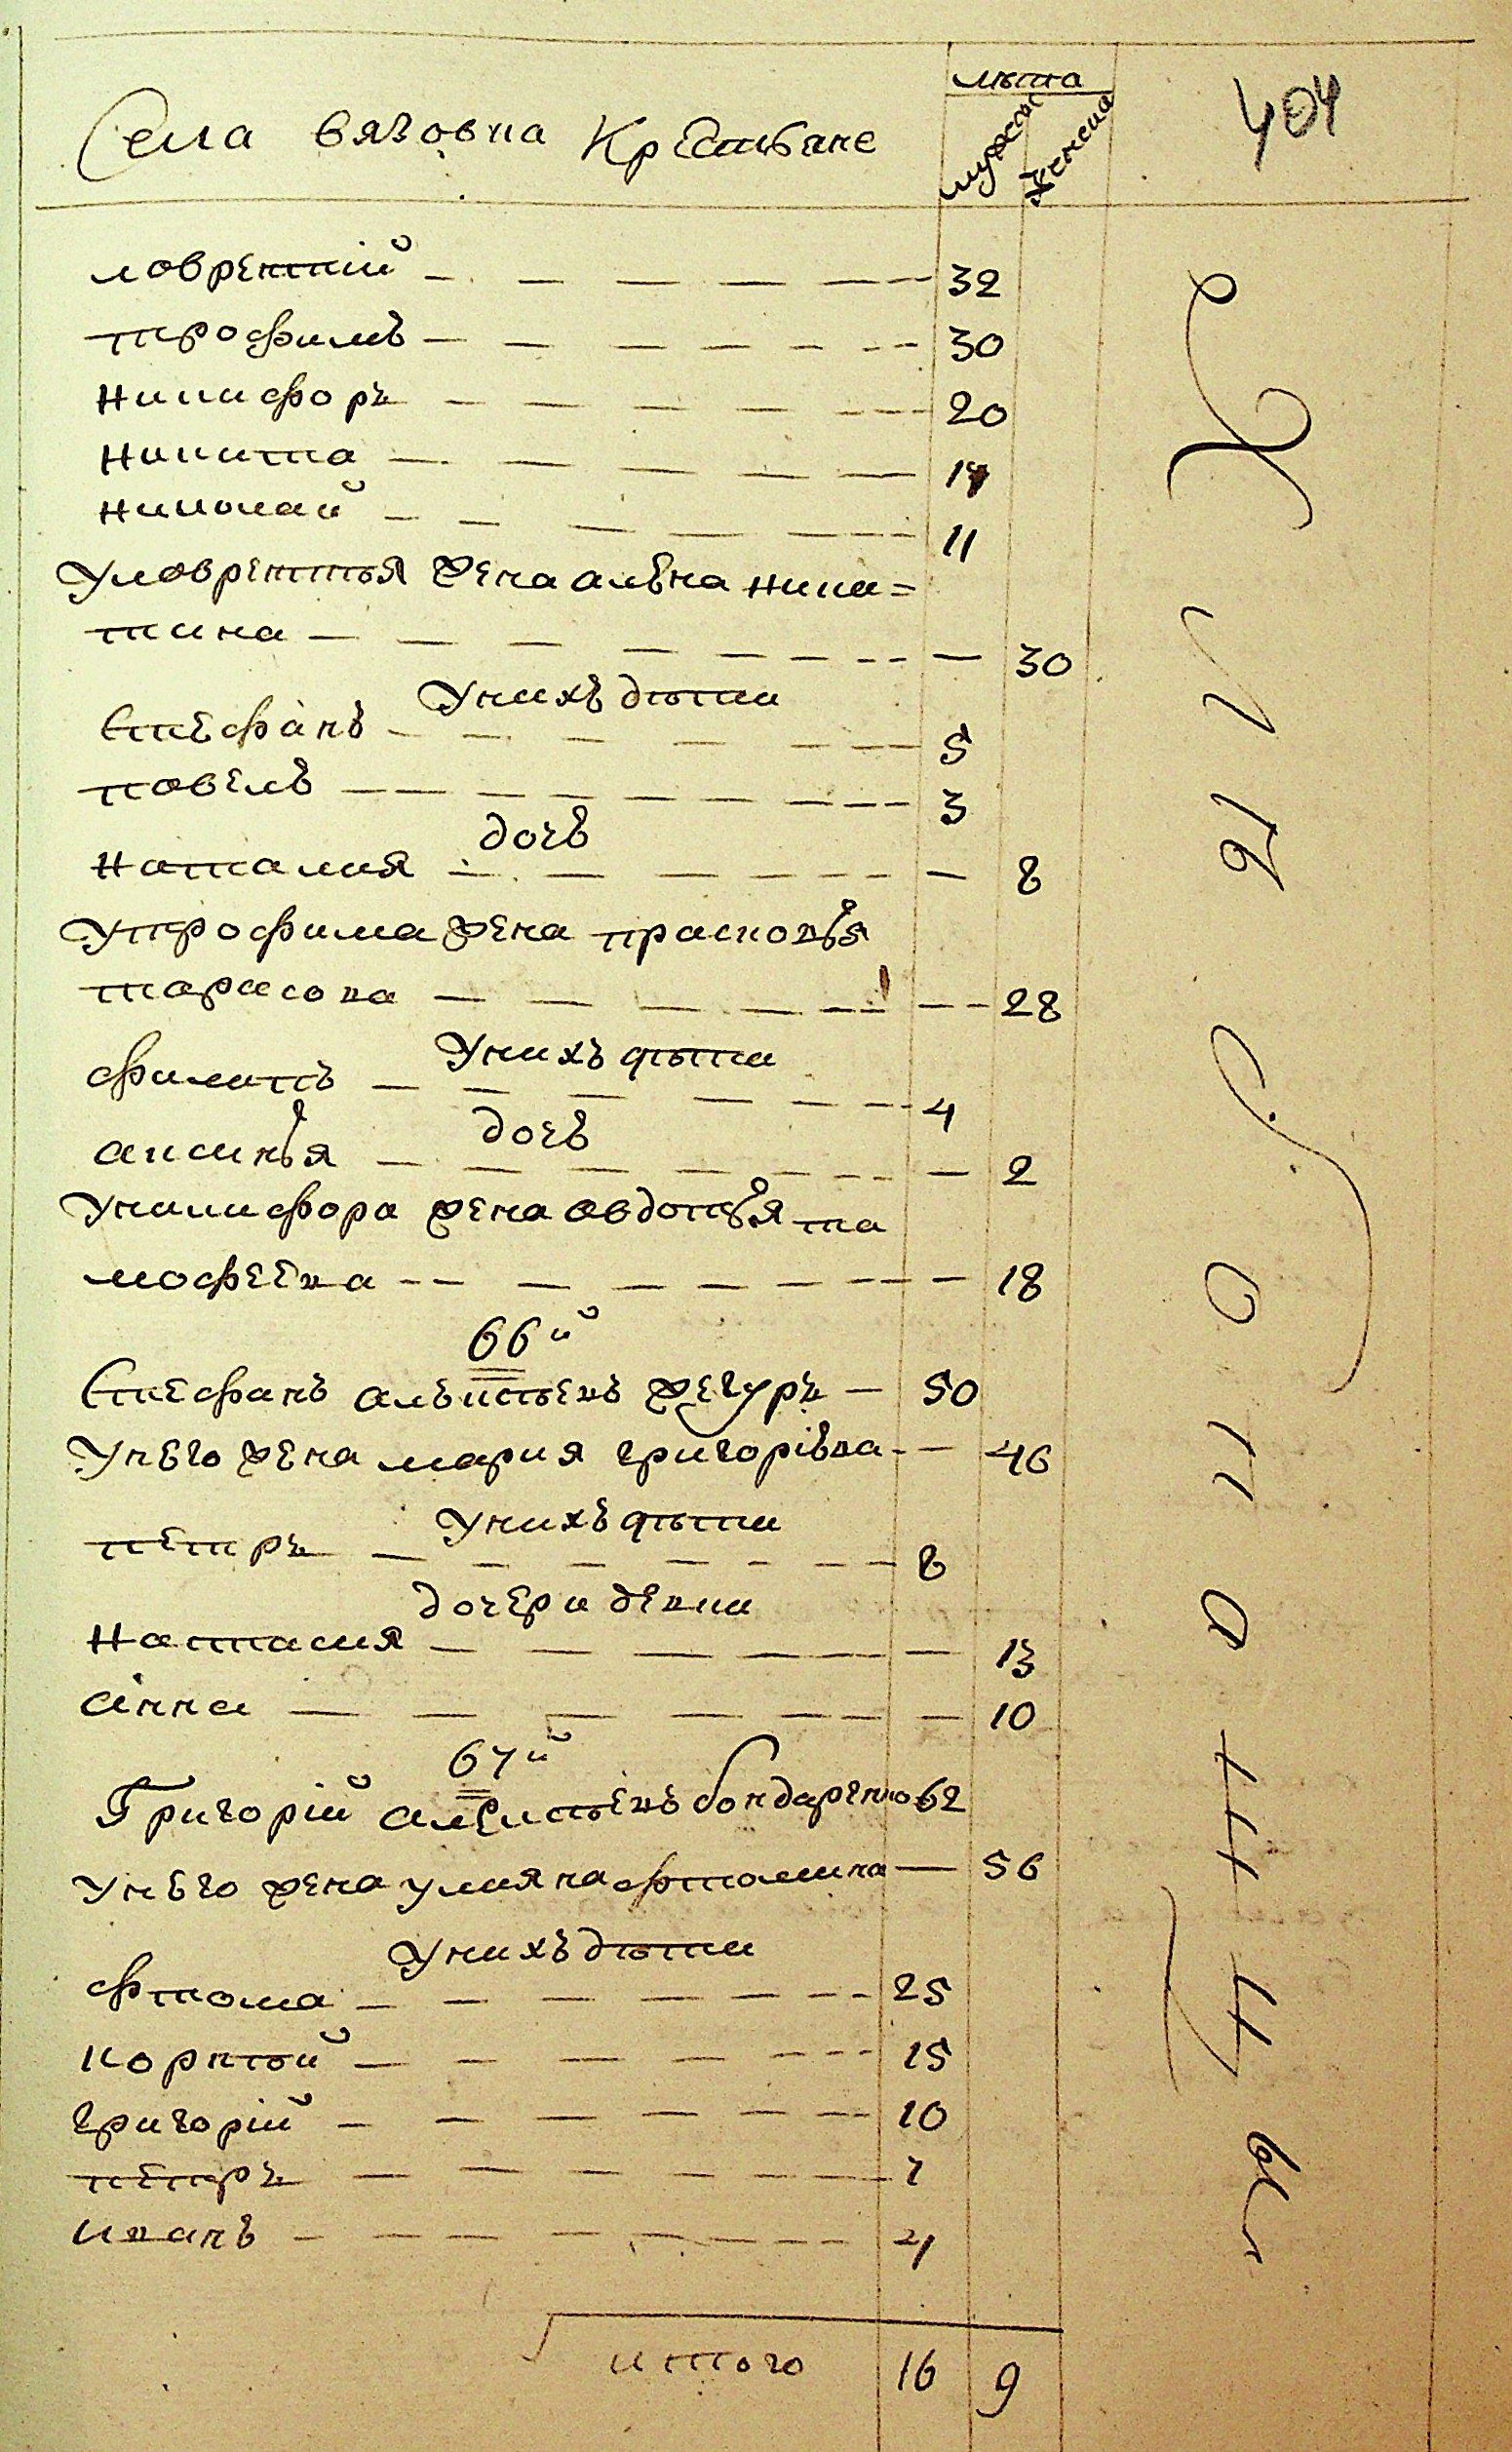 лѣта
Села вязовка Крестьяне мужска женска 404
ловрентій 32
трофимъ 30
никифоръ 20
никита
николай 11
У ловрентья жена алѣна ники=
тина 30
У нихъ дѣти
Стефанъ 5
павелъ 3
дочь
наталия 8
У трофима жена прасковья
тарасова 28
У нихъ дѣти
филипъ 4
дочь
аксинья 2
У никифора жена овдотья ти
мофеева 18
66й
Стефанъ алексѣевъ 50
У него жена мария григорівна 46
У нихъ дѣти
петръ 8
дочери девки
настасия 13
анна 10
67й
Григорій алексѣевъ бондаренко 62
У него жена улияна фтомина 56
У нихъ дѣти
фтома 25
корнѣй 15
григорій 10
петръ 7
иванъ 4
итого 16 9